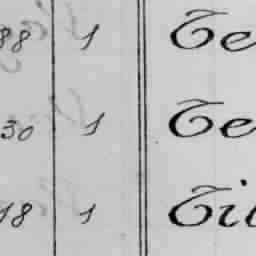 88 1 Te
30 1 Te
18 1 Ti